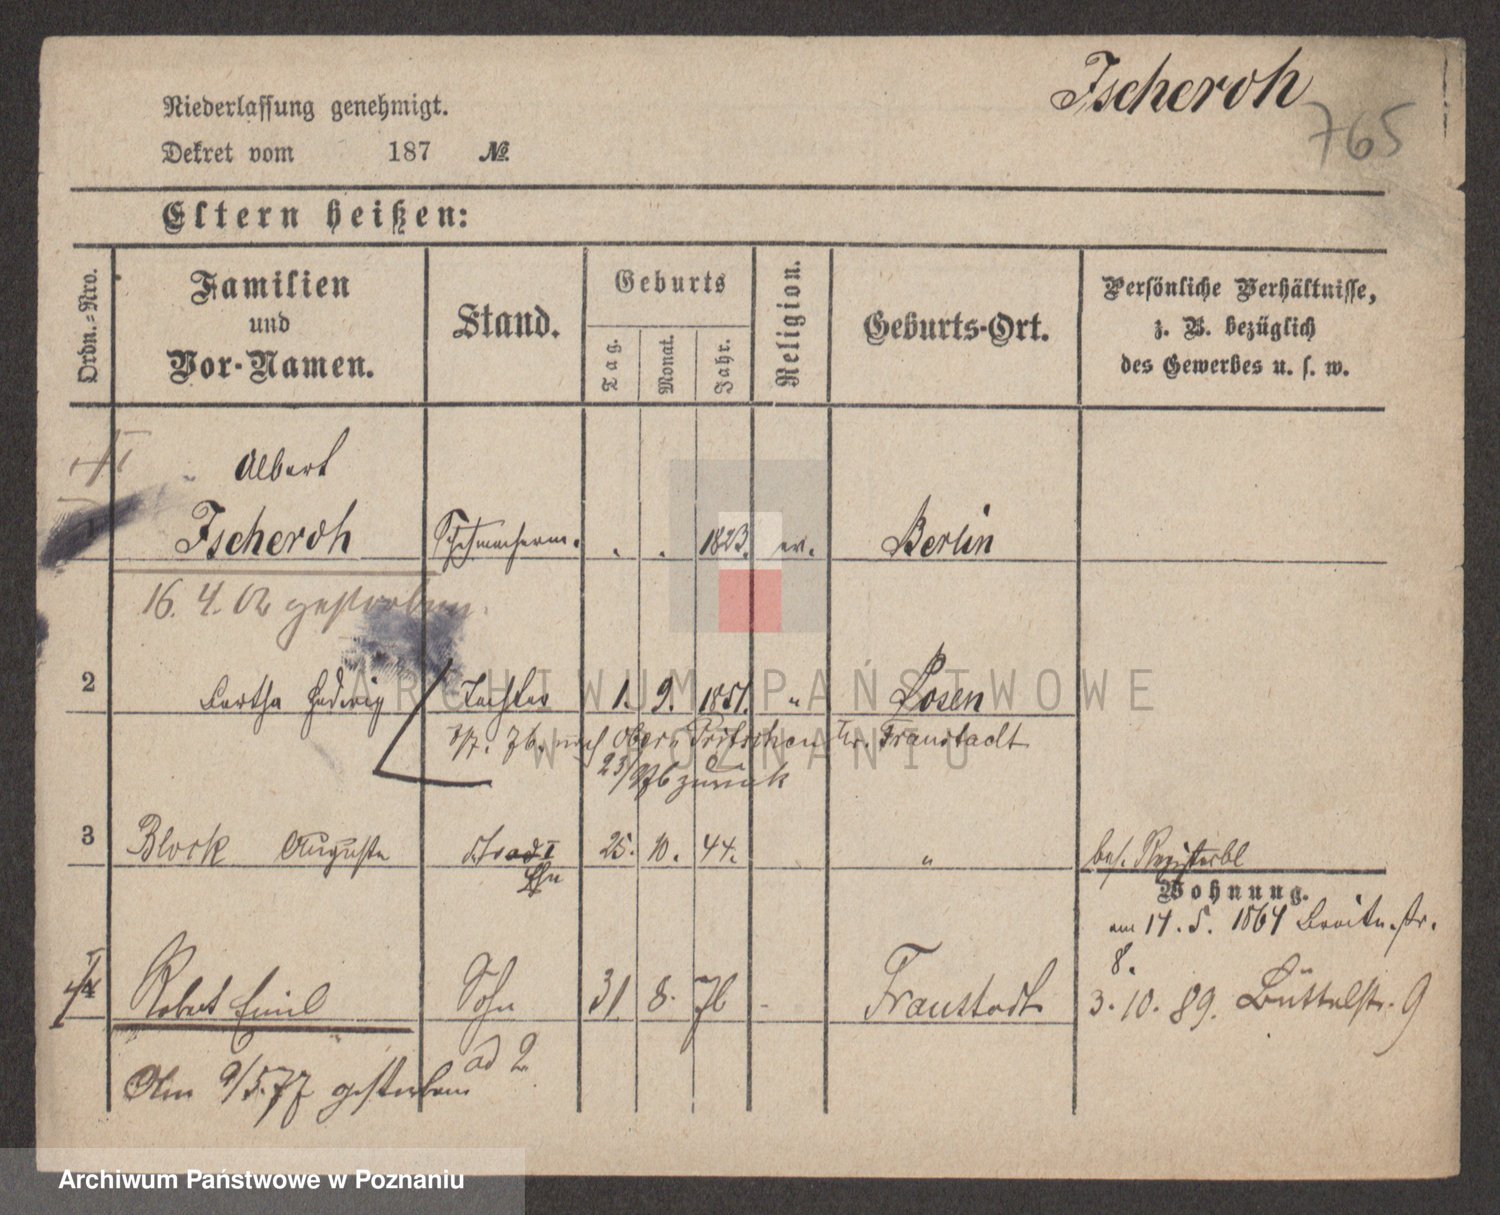 Tscheroh
765
Niederlassung genehmigt.
Dekret vom 187 №
Eltern heißen:
Ordn.-Nro.
Familien und Vor-Namen.
Stand.
Geburts
Tag.
Monat.
Jahr.
Religion.
Geburts-Ort.
Persönliche Verhältnisse,
z. B. bezüglich
des Gewerbes u. s. w.
Albert
1 Tscheroh . . 1823. ev. Berlin
16. 4. 02 gestorben.
2 Bertha Hedwig Tochter 1. 9. 1851. " Posen
76. nach Ober Pritschen Kr. Fraustadt
23/9 76 zurück
3 Block Auguste 25. 10. 44. " bes. Registerbl
Wohnung.
am 14. 5. 1864 Breite-str.
8.
4 Robert Emil Sohn 31. 8. 76 - Fraustadt 3. 10. 89. Büttelstr. 9
ad 2
Am 9/5.77 gestorben
ARCHIWUM PAŃSTWOWE
W POZNANIU
Archiwum Państwowe w Poznaniu